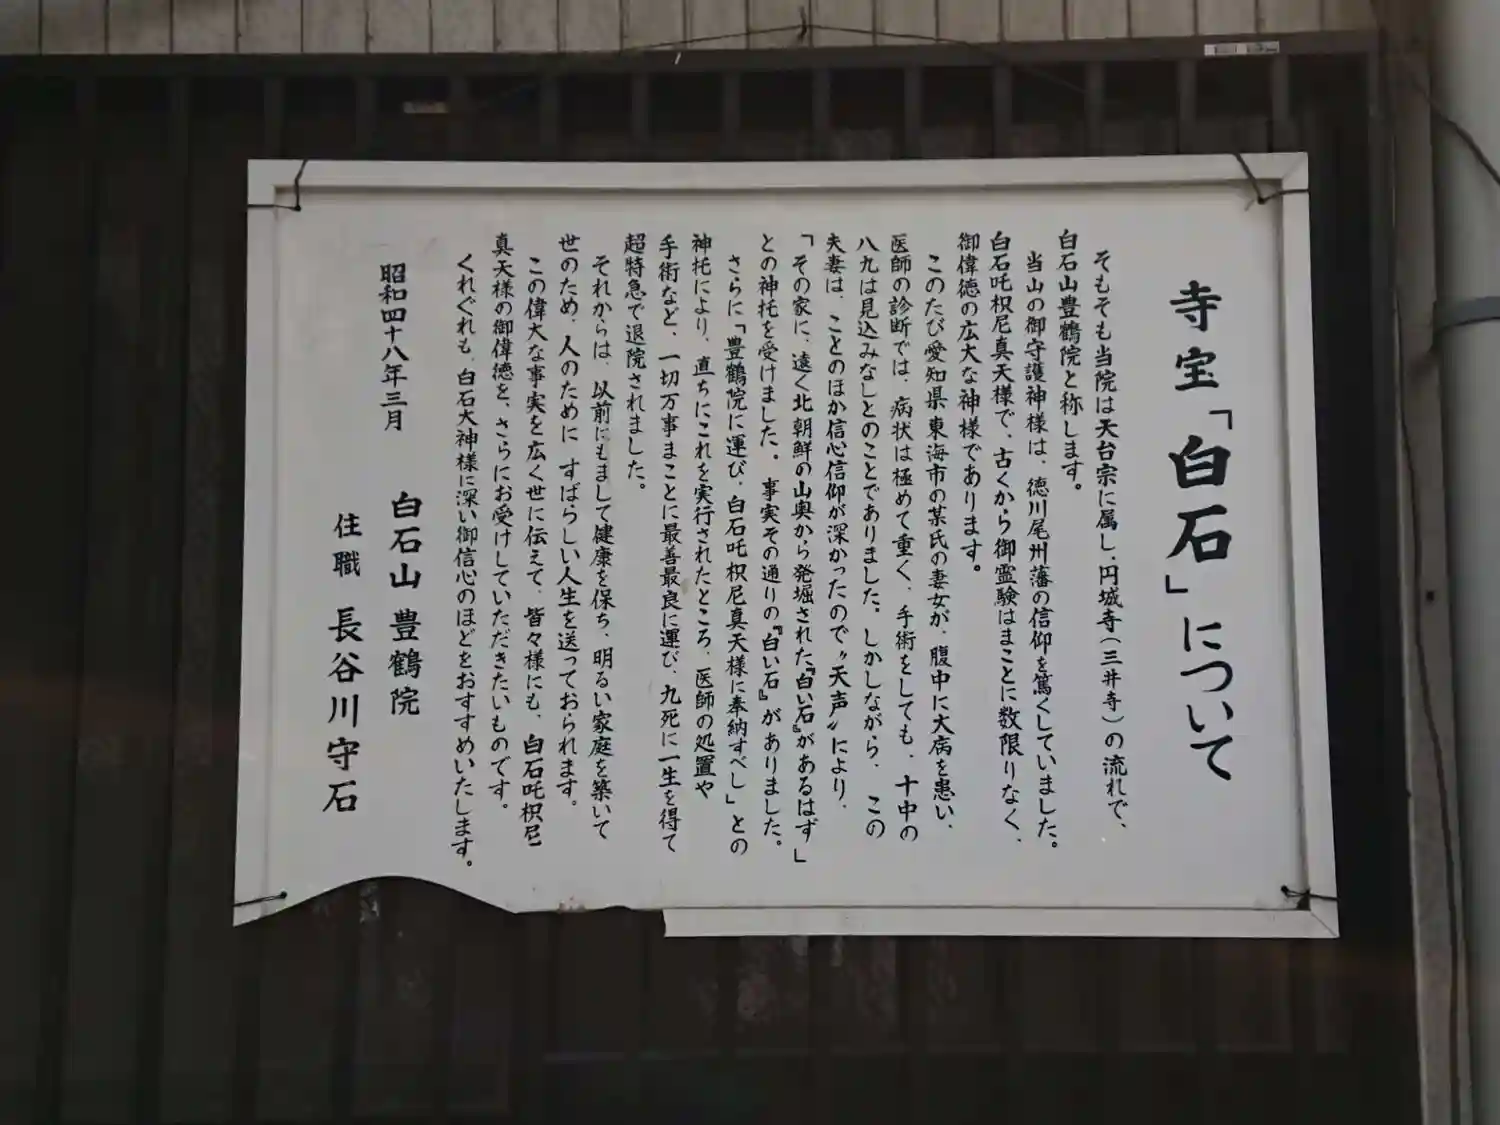 寺宝「白石」について
そもそも当院は天台宗に属し、円城寺(三井寺)の流れで、
白石山豊鶴院と称します。
当山の御守護神様は、徳川尾州藩の信仰を篤くしていました。
白石吒枳尼真天様で、古くから御霊験はまことに数限りなく、
御偉徳の広大な神様であります。
このたび愛知県東海市の某氏の妻女が、腹中に大病を患い、
医師の診断では、病状は極めて重く、手術をしても、十中の
八九は見込みなしとのことでありました。しかしながら、この
夫妻は、ことのほか信心信仰が深かったので〃天声〃により、
「その家に、遠く北朝鮮の山奥から発堀された『白い石』があるはず」
との神托を受けました。事実その通りの『白い石』がありました。
さらに「豊鶴院に運び、白石吒枳尼真天様に奉納すべし」との
神托により、直ちにこれを実行されたところ、医師の処置や
手術など、一切万事まことに最善最良に運び、九死に一生を得て
超特急で退院されました。
それからは、以前にもまして健康を保ち、明るい家庭を築いて
世のため、人のために すばらしい人生を送っておられます。
この偉大な事実を広く世に伝えて、皆々様にも、白石吒枳尼
真天様の御偉徳を、さらにお受けしていただきたいものです。
くれぐれも、白石大神様に深い御信心のほどをおすすめいたします。
昭和四十八年三月
白石山 豊鶴院
住職 長谷川守石